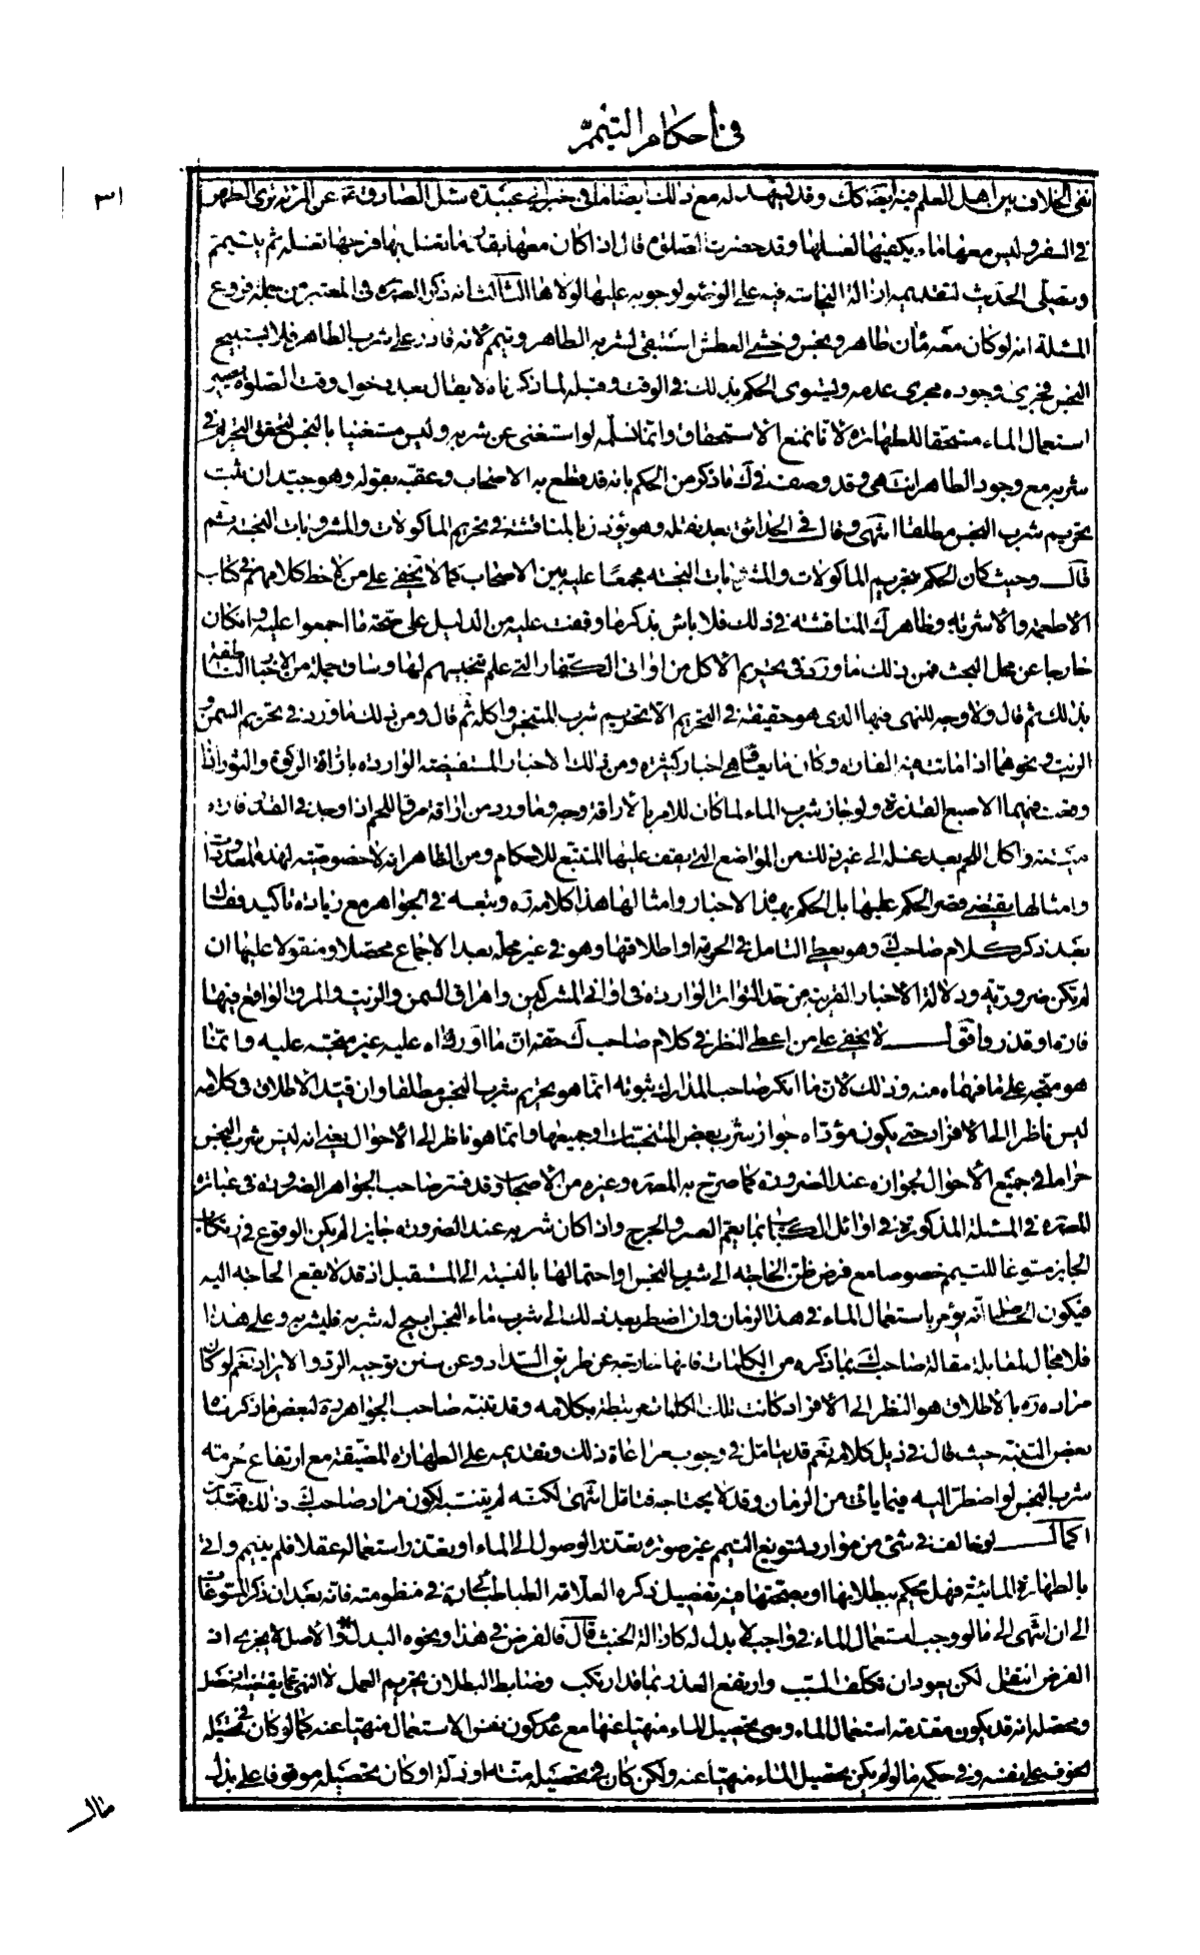 في احكام التيمم
٣١
نفى الخلاف بين اهل العلم فيه ايضا كك وقد يشهد له مع ذلك ايضا ما في خبر ابي عبيدة سئل الصادق ع عن المرئة ترى الطهر
في السفر وليس معها ماء يكفيها لغسلها وقد حضرت الصلوة قال اذا كان معها بقدر ما تغسل به فرجها تغسله ثم تتيمم
وتصلى الحديث لتقديمه ازالة النجاسة فيه على الوضوء لوجوبه عليها لولاها الثالث انه ذكر المصنف ره في المعتبر من جملة فروع
المسئلة انه لو كان معه ماان طاهر ونجس وخشى العطش استبقى لشربه الطاهر وتيمم لانه قادر على شرب الطاهر فلا يستبيح
النجس فجرى وجوده مجرى عدمه ويستوى الحكم بذلك في الوقت وقبله لما ذكرناه لا يقال بعد دخول وقت الصلوة يصير
استعمال الماء مستحقا للطهارة لانا نمنع الاستحقاق وانما نسلمه لو استغنى عن شربه وليس مستغنيا بالنجس لتحقق التحريم في
شربه مع وجود الطاهر انتهى وقد وصف في ك ما ذكر من الحكم بانه قد قطع به الاصحاب وعقبه بقوله وهو جيد ان ثبت
تحريم شرب النجس مطلقا انتهى وقال في الحدائق بعد نقله وهو يؤذن بالمناقشة في تحريم الماكولات والمشروبات النجسة ثم
قال وحيث كان الحكم بتحريم الماكولات والمشروبات النجسة مجمعا عليه بين الاصحاب كما لا يخفى على من لاحظ كلامهم في كتاب
الاطعمة والاشربة وظاهر ك المناقشة في ذلك فلا باس بذكر ما وقفت عليه من الدليل على صحة ما اجمعوا عليه وان كان
خارجا عن محل البحث فمن ذلك ما ورد في تحريم الاكل من اواني الكفار التي علم تنجيسهم لها وساق جملة من الاخبار الناطقة
بذلك ثم قال ولا وجه للنهى فيها الذى هو حقيقة في التحريم الا تحريم شرب المتنجس واكله ثم قال ومن ذلك ما ورد في تحريم السمن و
الزيت ونحوهما اذا ماتت فيه الفارة وكان مايعا وهي اخبار كثيرة ومن ذلك الاخبار المستفيضة الواردة باراقة الركوة والتور اذا
وقعت فيهما الاصبع القذرة ولو جاز شرب الماء لما كان للامر بالاراقة وجه وما ورد من اراقة مرق اللحم اذا وجد في القدر فارة
ميتة واكل اللحم بعد غسله الى غير ذلك من المواضع التي يقف عليها المتتبع للاحكام ومن الظاهر انه لا خصوصية لهذه المعدودات
وامثالها يقتضى قصر الحكم عليها بل الحكم بهذه الاخبار وامثالها هذا كلامه ره وتبعه في الجواهر مع زيادة تاكيد فقال
بعد ذكر كلام صاحب ك وهو يعطى التامل في الحرمة او اطلاقها وهو في غير محله بعد الاجماع محصلا ومنقولا عليها ان
لم تكن ضرورية ودلالة الاخبار القريبة من حد التواتر الواردة في اواني المشركين واهراق السمن والزيت والمرق الواقع فيها
فارة او قذر واقول لا يخفى على من اعطى النظر في كلام صاحب ك حقه ان ما اورداه عليه غير متجه عليه وانما
هو متجه على ما فهماه منه وذلك لان ما انكر صاحب المدارك ثبوته انما هو تحريم شرب النجس مطلقا وان قيد الاطلاق في كلامه
ليس ناظرا الى الافراد حتى يكون مؤداه جواز شرب بعض المتنجسات او جميعها وانما هو ناظر الى الاحوال يعنى انه ليس شرب النجس
حراما في جميع الاحوال لجوازه عند الضرورة كما صرح به المصنف ره وغيره من الاصحاب وقد فسر صاحب الجواهر الضرورة في عبارة
المصنف ره في المسئلة المذكورة في اوائل الكتاب بما يعم العسر والحرج واذا كان شربه عند الضرورة جايزا لم يكن الوقوع في ارتكاب
الجايز مسوغا للتيمم خصوصا مع فرض ظن الحاجة الى شرب النجس او احتمالها بالنسبة الى المستقبل اذ قد لا يقع الحاجة اليه
فيكون الحاصل انه يؤمر باستعمال الماء في هذا الزمان وان اضطر بعد ذلك الى شرب ماء النجس ابيح له شربه فليشربه وعلى هذا
فلا مجال لمقابلة مقالة صاحب ك بما ذكره من الكلمات فانها خارجة عن طريق السداد وعن سنن توجيه الرد والايراد نعم لو كان
مراده ره بالاطلاق هو النظر الى الافراد كانت تلك الكلمات مرتبطة بكلامه وقد تنبه صاحب الجواهر ره لبعض ما ذكرنا
بعض التنبه حيث قال في ذيل كلامه نعم قد يتامل في وجوب مراعاة ذلك وتقديمه على الطهارة المضيقة مع ارتفاع حرمته
شرب النجس لو اضطر اليه فيما ياتى من الزمان وقد لا يحتاجه فتامل انتهى لكنه لم يتنبه لكون مراد صاحب ك ذلك فتدبر
اكمال لو خالف في شئ من موارد تسويغ التيمم غير صورة تعذر الوصول الى الماء او تعذر استعماله عقلا فلم يتيمم واتى
بالطهارة المائية فهل يحكم ببطلانها او بصحتها فيه تفصيل ذكره العلامة الطباطبائى ره في منظومته فانه بعد ان ذكر المسوغات
الى ان انتهى الى ما لو وجب استعمال الماء في واجب لا بدل له كازالة الخبث قال فالفرض في هذا ونحوه البدل والاصل لا يجزى اذ
الفرض انتقل لكن يعود ان تكلف السبب وارتفع العذر بما قد ارتكب وضابط البطلان تحريم العمل لا النهى عما يقتضيه ان حصل
ومحصله انه قد يكون مقدمة استعمال الماء وهي تحصيل الماء منهيا عنها مع عدم كون نفس الاستعمال منهيا عنه كما لو كان في تحصيله
الخوف على نفسه وفي حكمه ما لو لم يكن تحصيل الماء منهيا عنه ولكن كان في تحصيله منة او ذلة او كان تحصيله موقوفا على بذل
مال